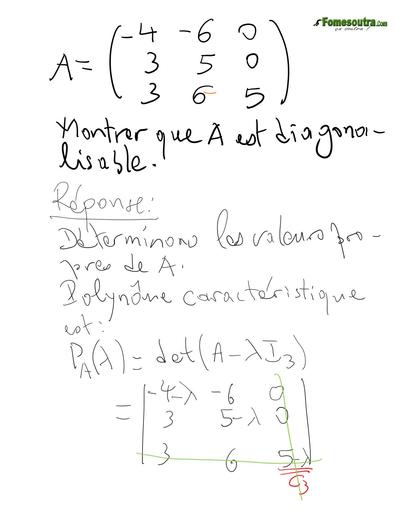 Fomesoutra.com
ça soutra !
A = ( -4 -6 0
3 5 0
3 6 5 )
Montrer que A est diagona-
lisable.
Réponse:
Déterminons les valeurs pro-
pres de A.
Polynôme caractéristique
est:
P_A(λ) = det(A-λI_3)
= | -4-λ -6 0
3 5-λ 0
3 6 5-λ |
C_3